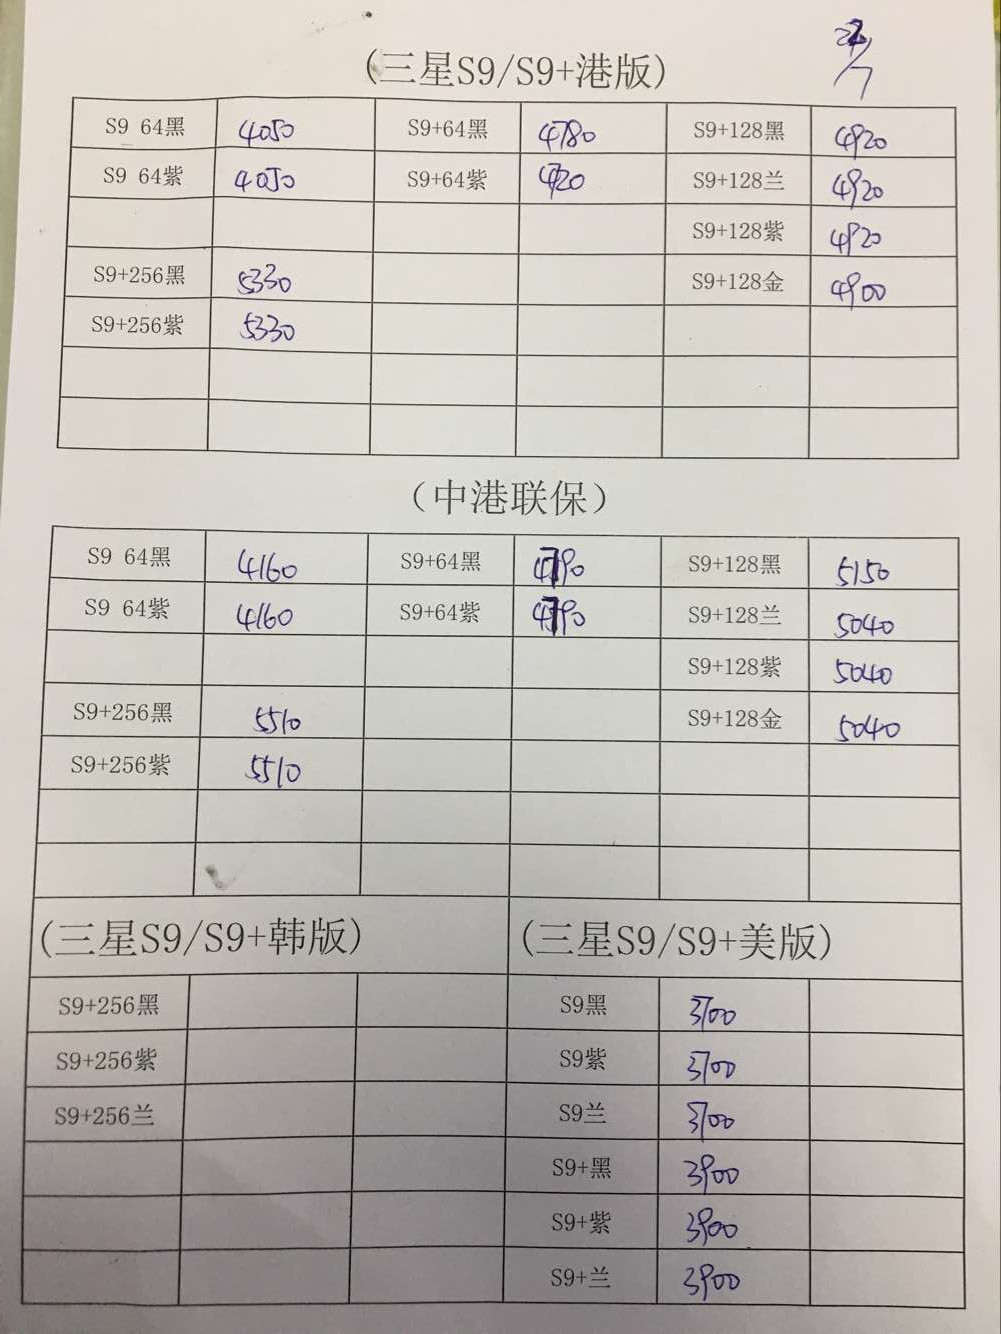 (三星S9/S9+港版)
S9 64黑 4050 S9+64黑 4780 S9+128黑 4920
S9 64紫 4050 S9+64紫 S9+128兰 4920
S9+128紫 4920
S9+256黑 5330 S9+128金 4900
S9+256紫 5330
（中港联保）
S9 64黑 4160 S9+64黑 4790 S9+128黑 5150
S9 64紫 4160 S9+64紫 4790 S9+128兰 5040
S9+128紫 5040
S9+256黑 5510 S9+128金 5040
S9+256紫 5510
(三星S9/S9+韩版) (三星S9/S9+美版)
S9+256黑 S9黑 3700
S9+256紫 S9紫 3700
S9+256兰 S9兰 3700
S9+黑 3900
S9+紫 3900
S9+兰 3900